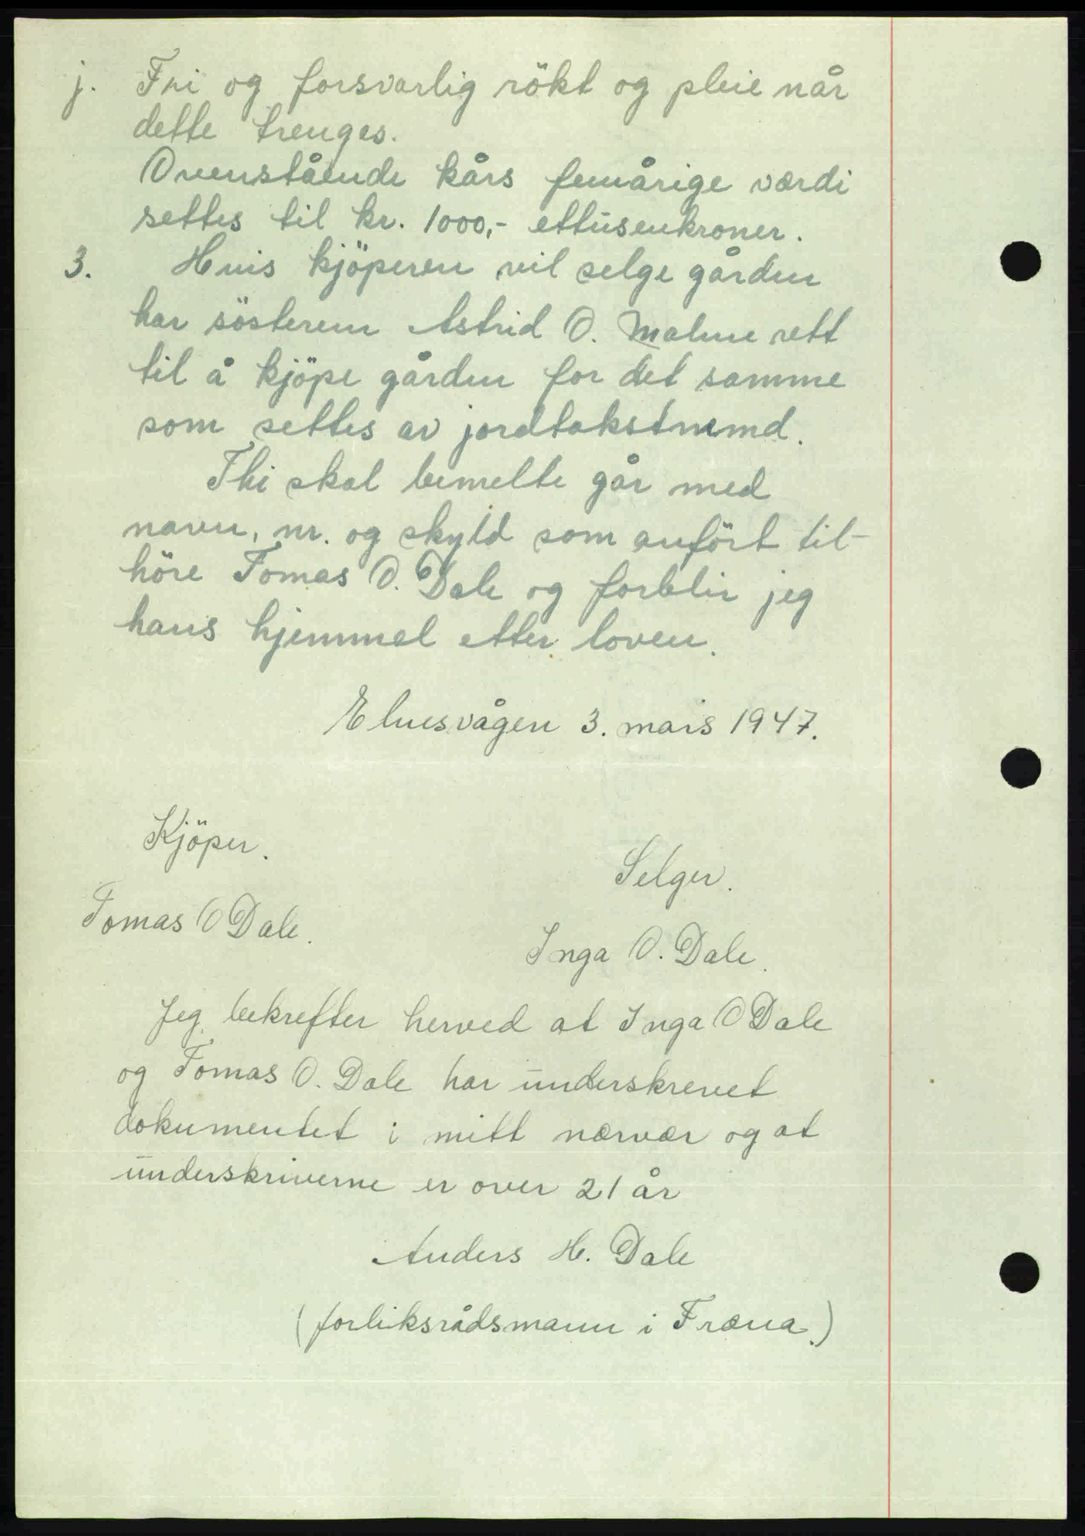 j. Fri og forsvarlig rökt og pleie når
dette trenges.
Ovenstående kårs femårige værdi
settes til kr. 1000,- ettusenkroner.
3. Hvis kjöperen vil selge gården
har sösteren Astrid O. Malme rett
til å kjöpe gården for det samme
som settes av jordtakstnemd.
Thi skal bemelte går med
navn, nr. og skyld som anfört til-
höre Tomas O. Dale og forblir jeg
hans hjemmel etter loven.
Elnesvågen 3. mars 1947.
Kjöper.
Selger.
Tomas O Dale.
Inga O. Dale.
Jeg bekrefter herved at Inga O Dale
og Tomas O. Dale har underskrevet
dokumentet i mitt nærvær og at
underskriverne er over 21 år
Anders H. Dale
(forliksrådsmann i Fræna.)